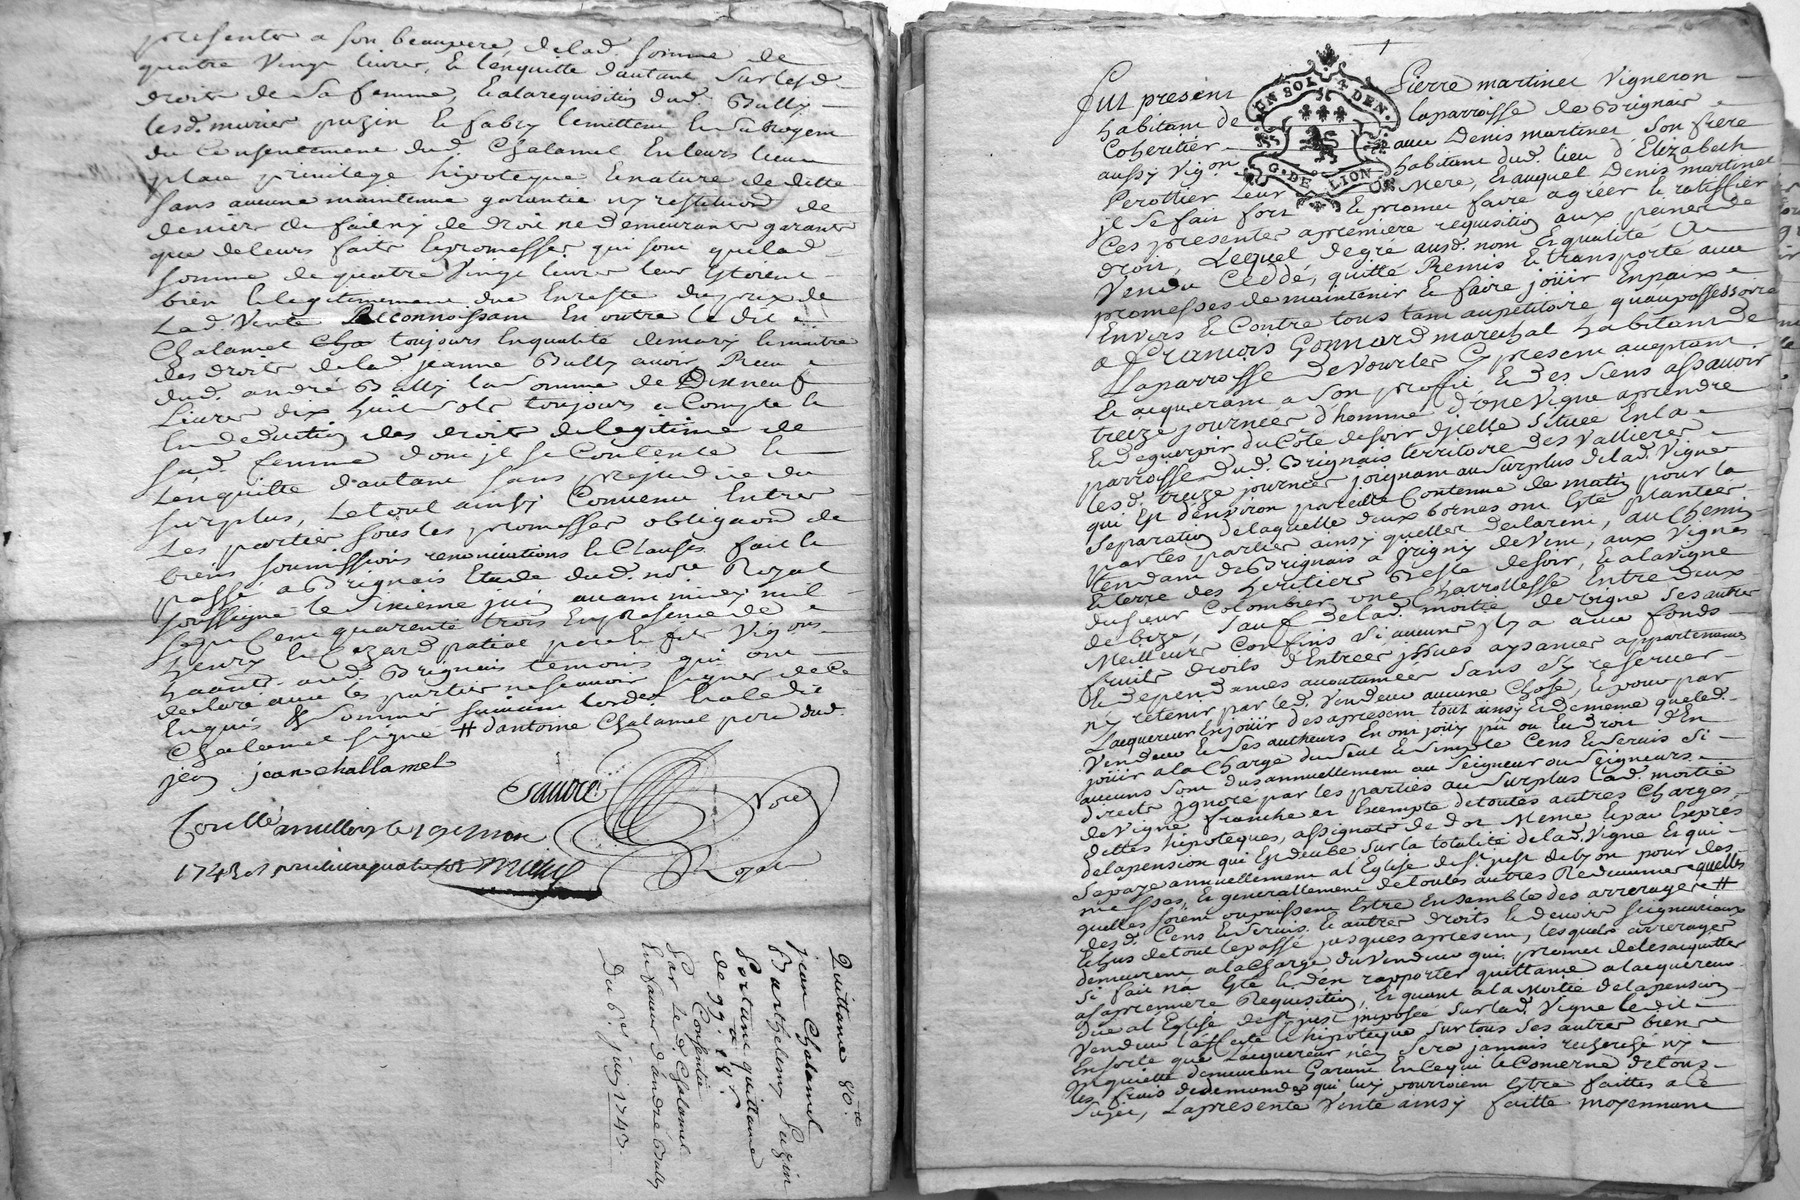 presente a son beaupere de lad. somme de
quatre vingt livres, & l'enquitte d'autant sur lesd.
droits de sa femme, & a la requisition dud. Bully
lesd. murier puzin & fabry le mettent & subrogent
du consentement dud. Chalamel en leurs lieu
place privilege hipoteque & nature de dette
sans aucune maintenue garantie ny restitution de
deniers de fait ny de droit ne demeurants garants
que de leurs faits & promesses qui sont que lad.
somme de quatre vingt livres leur estoient
bien & legitimement due en reste du prix de
Lad. Vente Reconnoissant en outre le dit
Chalamel toujours en qualité de mary & maitre
des droits de lad. jeanne Bully avoir Reçu
dud. andré Bully la somme de Dixneuf
Livres dix huit sols toujours a Compte &
en deduction des droits de legitime de
sad. femme dont il se Contente &
l'enquitte d'autant sans prejudice du
surplus, Le tout ainsy Convenu Entre
les parties sous les promesses obligaons de
biens soumissions renonciations & Clauses fait &
passé a Brignais Etude dud. nore. Royal
soussigné le sixieme juin avant midy mil
sept cent quarente trois En presence de
henry & Cezard patiat pere & fils Vigons
habitts. aud. Brignais temoins qui ont
declaré avec les parties ne scavoir signer de ce
Enquis & sommés suivant lordce. & a le dit
Chalamel signé # d'antoine Chalamel pere dud.
jean jean challamel
sauvre Nore
Royal
Conllé
1743
Quittance 80.
jean Chalamel
Barthelemy puzin
portant quittance
de 99. 18s.
Consentie
Par Led. Chalamel
En faveur d'andré Bully
Du 6e. juin 1743
Fut present Pierre martinet Vigneron
habitant de laparroisse de Brignais
Coheritier avec Denis martinet son frere
aussy Vigon. habitant dud. lieu d'Elizabeth
Perottier Leur Mere, & auquel Denis martinet
jl se fait fort & promet faire agréer & rattiffier
Ces presentes a premiere requisition aux peines de
droit, Lequel de gré ausd. nom & qualité a
Vendu Ceddé, quitté Remis & transporté avec
promesses de maintenir & faire joüir En paix
Envers & Contre tous tant au petitoire qu'au possessoire
a François Gonnard marechal habitant de
Laparroisse de Vourles Cy present aceptant
& acquerant a son proffit & des siens assavoir
treize journées d'homme d'une Vigne a prendre
& deguerpir du Côté de soir d'jcelle située En la
parroisse dud. Brignais territoire des Vallieres
lesd. treize journées joignant au surplus de lad. Vigne
qui est d'environ pareille Contenue de matin pour la
separation de laquelle deux bornes ont esté plantées
par les parties ainsy qu'elles declarent, au Chemin
tendant de Brignais a jrigny de Vent, aux Vignes
& terre des heritiers de soir, & a la vigne
du sieur Colombier une Charollesse Entre deux
de bize, sauf de lad. moitié de vigne ses autres
Meilleurs Confins si aucuns jl y a avec fonds
fruits droits d'Entrées jssues aysances appartenances
& dependances acoutumées sans s'y reserver
ny retenir par led. Vendeur aucune Chose, & pour par
Lacquereur En joüir des a present tout ainsy & de meme que led.
Vendeur & ses autheurs En ont jouy pû ou eu droit d'En
joüir a la Charge du seul & simple Cens & servis si
aucuns sont dus annuellement au seigneur ou seigneurs
directs jgnoré par les parties au surplus Lad. moitié
de Vigne franche & Exempte de toutes autres Charges
dettes hipoteques, assignats de dot Meme & par Exprés
de la pension qui est deube sur la totalité de lad. Vigne & qui
se paye annuellement a l'Eglise de st. just de Lyon pour des
messes, & generallement de toutes autres Redevances quelles
quelles soient ou puissent Estre Ensemble des arrerages #
desd. Cens & servis. & autres droits & devoirs seigneuriaux
Echus de tout le passé jusques a present, lesquels arrerages
demeurent a la Charge du Vendeur qui promet de les acquitter
si fait n'a Esté & d'en rapporter quittance a lacquereur
a sa premiere Requisition, & quant a la Moitié de la pension
düe a l'Eglise de st. just jmposée sur lad. Vigne le dit
Vendeur l'affecte & hipoteque sur tous ses autres biens
En sorte que Lacquereur n'en sera jamais recherché ny
jnquietté demeurant Garant En ce qui le Concerne de tous
les frais & demandes qui luy pourroient Estre faittes a ce
sujet, La presente Vente ainsy faitte moyennant
UN SOL 4 DEN.
G. DE LION